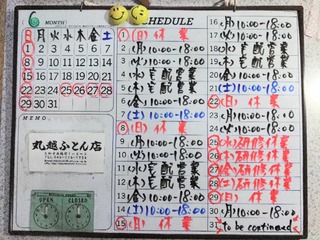 6 MONTH SCHEDULE
日 月 火 水 木 金 土
1 2 3 4 5 6 7
8 9 10 11 12 13 14
15 16 17 18 19 20 21
22 23 24 25 26 27 28
29 30 31
MEMO.
丸越ふとん店
OPEN CLOSED
1 (日) 休業
2 (月) 10:00-18:00
3 (火) 10:00-18:00
4 (水) 宅配営業
5 (木) 宅配営業
6 (金) 10:00-18:00
7 (土) 10:00-18:00
8 (日) 休業
9 (月) 10:00-18:00
10 (火) 10:00-18:00
11 (水) 宅配営業
12 (木) 宅配営業
13 (金) 10:00-18:00
14 (土) 10:00-18:00
15 (日) 休業
16 (月) 10:00-18:00
17 (火) 10:00-18:00
18 (水) 宅配営業
19 (木) 宅配営業
20 (金) 10:00-18:00
21 (土) 10:00-18:00
22 (日) 休業
23 (月) 10:00-18:00
24 (火) 10:00-18:00
25 (水) 研修休業
26 (木) 研修休業
27 (金) 研修休業
28 (土) 研修休業
29 (日) 休業
30 (月) 10:00-18:00
31 to be continued